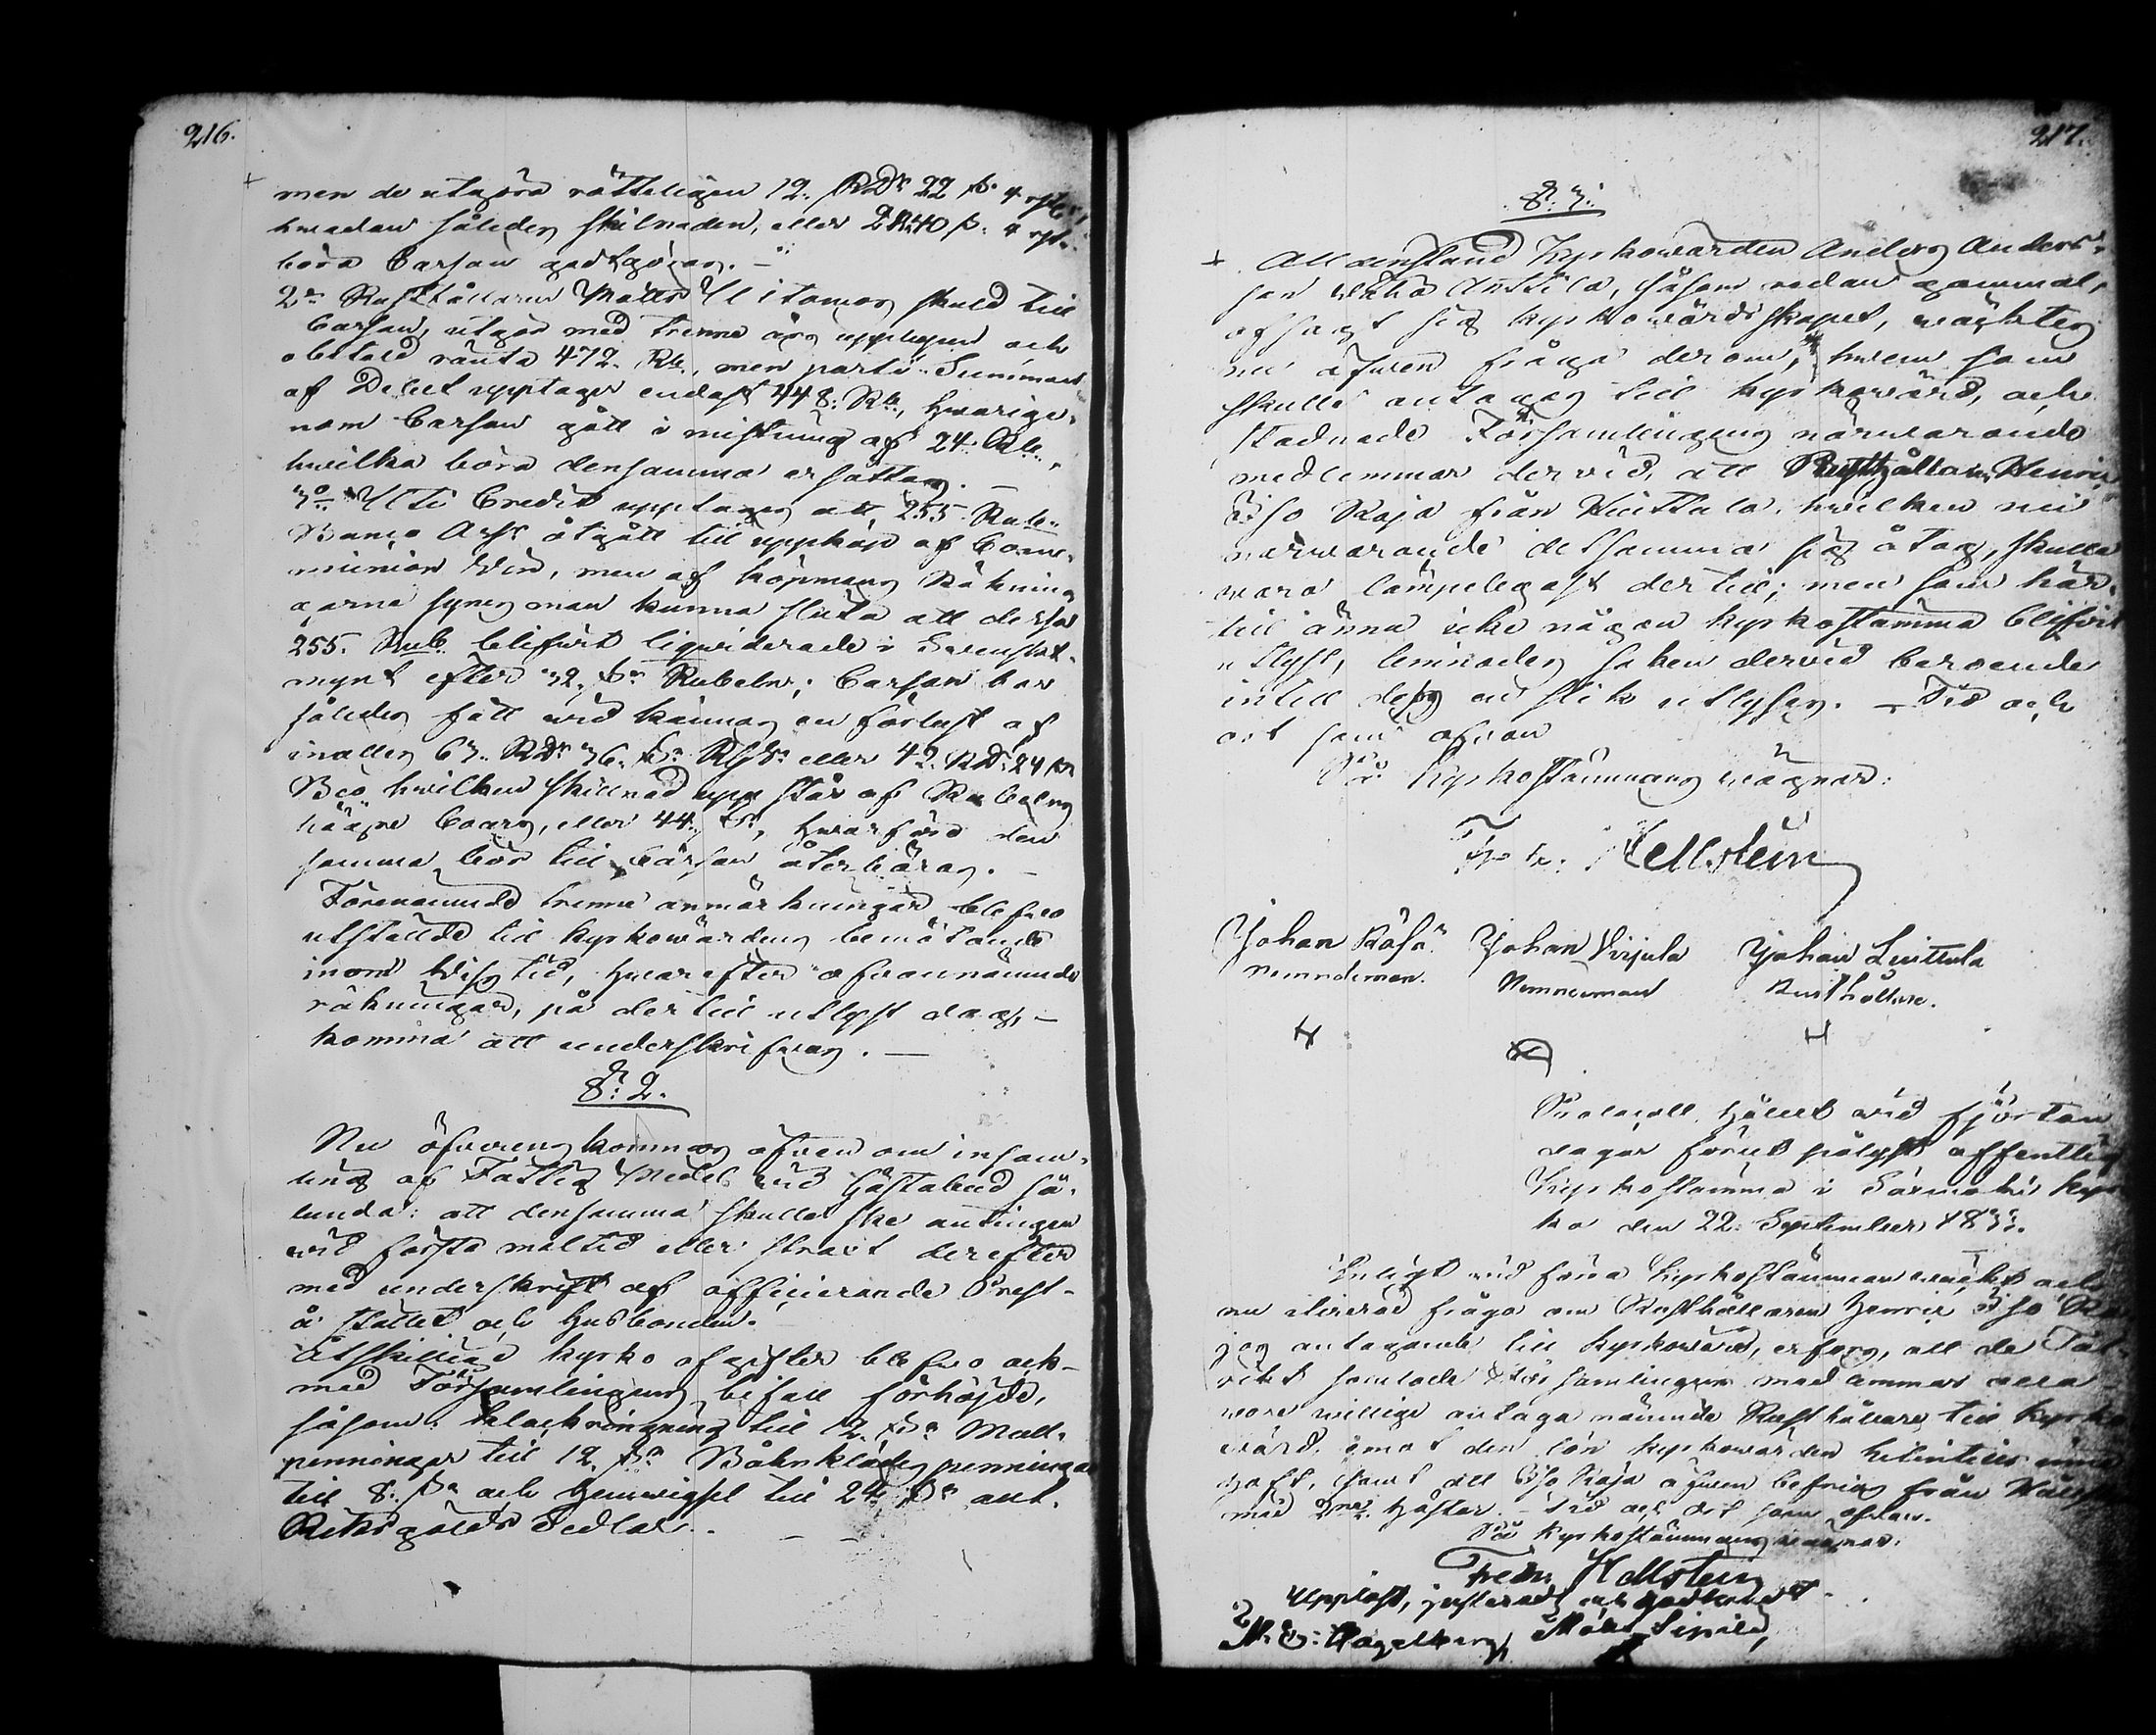 216.
men de utgöra rätteligen 12. RDr 22 s. 4 rst.,
hwadan således skilnaden, eller 2 R. 40 s. 4 rst.
böra Cassan godtgöras. —
2o Rusthållaren Matts Ylitamos skuld till
Cassan, utgör med trenne års upplupen och
obetald ränta 472. Rb., men parti Summan
af Debet upptager endast 448. Rb., hwarige-
nom Cassan gått i mistning af 24. Rb.,
hwilka böra densamma ersättas. —
3o Uti Credit upptages att 255. Rub.
Banco Ass. åtgått till uppköp af Com-
munion Win, men af köpmans Räkning
arne synes man kunna sluta att dessa
255. Rub. blifwit liquiderade i Swenskt
mynt efter 32. s. Rubeln; Cassan har
således fått widkännas en förlust af
inalles 63. RDr 36. s. Rgs. eller 42. RDr 24 s.
Bco hwilken skillnad uppstår af Rubelns
högre Cours, eller 44. s., hwarföre den
samma bör till Cassan återbäras. —
Förenämnde trenne anmärkningar blefwo
utstälde till Kyrkowärdens bemötande
inom wiss tid, hwarefter ofwannämnde
räkningar, på dertill utlyst dag, —
komma att underskrifwas. —
§. 2.
Nu öfwerenskommos äfwen om insam-
ling af Fattig Medel wid Gästabud så-
lunda: att densamma skulle ske antingen
wid första måltid eller strax derefter
med underskrift af officierande Prest-
å stället och Husbonden.
Åtskillige kyrko afgifter blefwo ock
med Församlingens bifall förhöjde,
såsom: Klockringning till 12. s. Mull-
penningar till 12. s. Bårklädespenningar
till 8. s. och Hemwigsel till 24. s. allt
Riksgälds Sedlar. — —
217.
§. 3.
Alldenstund Kyrkowärden Anders Anders-
son Anttila, såsom redan gammal,
afsagt sig kyrkowärdskapet, wäcktes
nu äfwen fråga derom, hwem som
skulle antagas till kyrkowärd, och
stadnade Församlingens närwarande
medlemmar dervid, att Rusthållaren Henric
Iso Raja från Kuittala, hwilken nu
närwarande detsamma sig åtog, skulle
wara lämpeligast dertill; men som här-
till ännu icke någon kyrkostämma blifwit
utlyst, lemnades saken dervid beroende
intill dess en slik utlyses. — Tid och
ort som ofwan
På Kyrkostämmans wägnar:
Fredr: Hellstein
Johan Johan Virjula Johan Luittula
Nemndeman. Nemneman Rusthållare.
Protocoll, hållet wid fjorton
dagar förut pålyst offentlig
Kyrkostämma i Säxmäki Kyr
ka den 22. September 1833.
Enligt wid förra Kyrkostämman wäckt och
nu itererad fråga om Rusthållaren Henric Iso Ra
jas antagande till Kyrkowärd, erfors, att de Tal-
rikt samlade Församlingens medlemmar alla
wore willige antaga nämnde Rusthållare till Kyrko
wärd, emot den lön kyrkowärden hitintills ännu
haft, samt att Iso Raja äfwen befrias från
med 2ne hästar. — Tid och ort som ofwan.
På Kyrkostämmans wägnar:
Fredr: Hellstein
Uppläst, justeradt och godkändt
Hagelberg, Matts Sipilä,